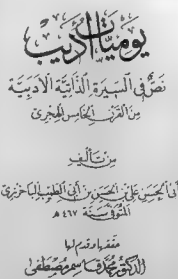 يوميات أديب
نص في السيرة الذاتية الأدبية
من القرن الخامس الهجري
من تأليف
أبي الحسن علي بن الحسن بن أبي الطيب الباخرزي
المتوفى سنة ٤٦٧ هـ
حققها وقدم لها
الدكتور محمد قاسم مصطفى